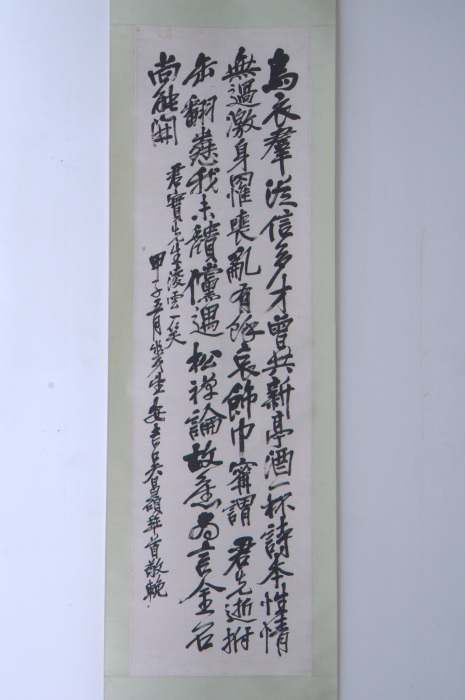 烏衣羣從信多才曾共新亭酒一杯詩本性情
無過激身罹喪亂有餘哀飾巾寗謂君先逝拊
缶翻我未隤儻遇松禪論故為言金石
尚能開
君寶先生淩雲一笑
甲子五月安吉吳昌碩頓首敬輓